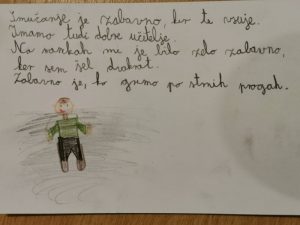 Smučanje je zabavno, ker te
Imamo tudi dobre učitelje.
Na sankah mi je bilo zelo zabavno,
ker sem šel dvakrat.
Zabavno je, ko gremo po strmih progah.